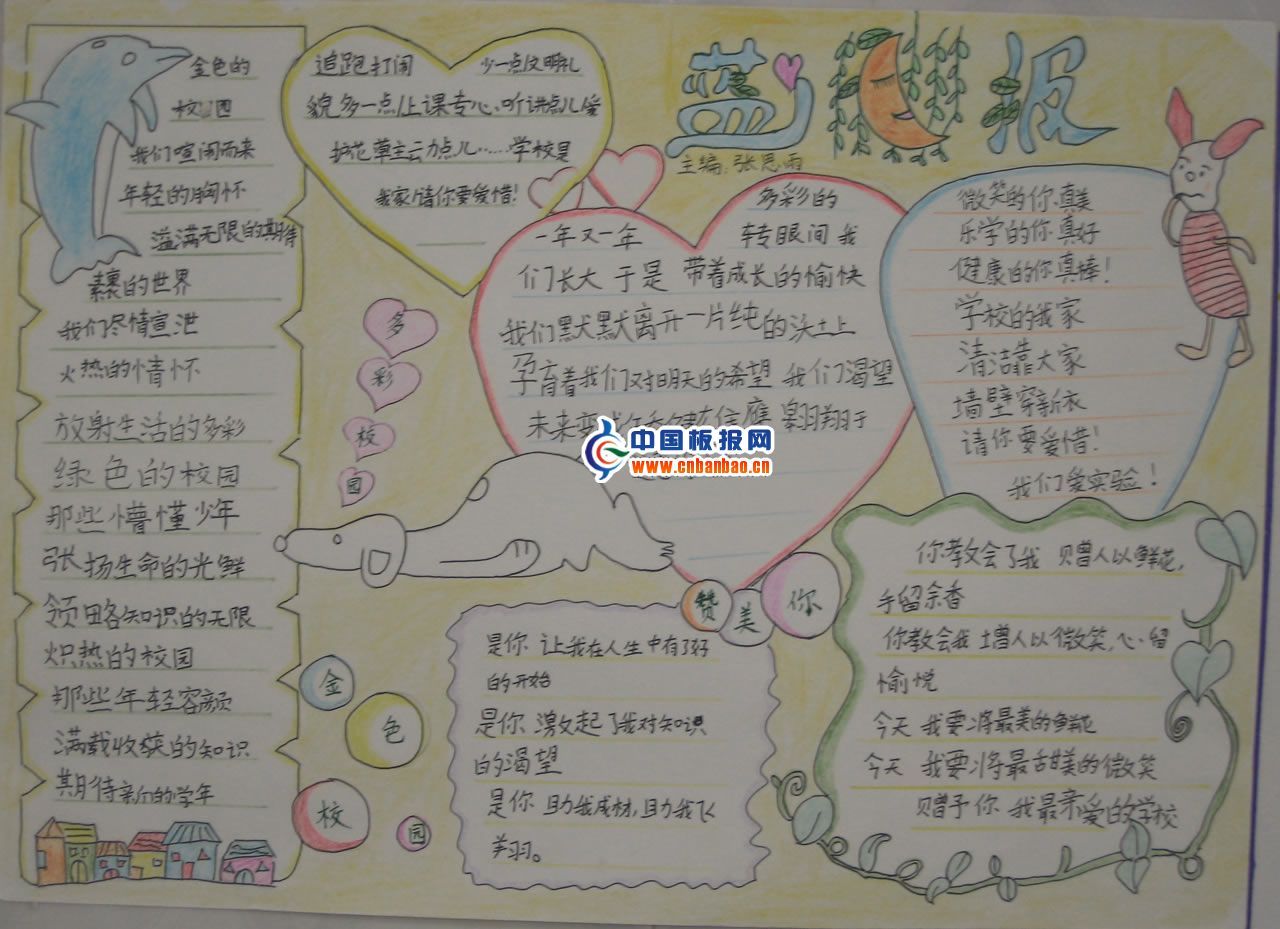 蓝月报
主编:张思雨
金色的
校园
我们喧闹而来
年轻的胸怀
溢满无限的期待
素裹的世界
我们尽情宣泄
火热的情怀
放射生活的多彩
绿色的校园
那些懵懂少年
张扬生命的光鲜
领略各知识的无限
炽热的校园
那些年轻容颜
满载收获的知识
期待新的学年
追跑打闹 少一点文明礼
貌多一点/上课专心、听讲点儿爱
护花草主云力点儿……学校是
我家/请你要爱惜!
多彩校园
多彩的
一年又一年 转眼间 我
们长大 于是 带着成长的愉快
我们默默离开一片纯的沃土上
孕育着我们对明天的希望 我们渴望
未来 翱翔于
中国板报网
www.cnbanbao.cn
微笑的你真美
乐学的你真好
健康的你真棒!
学校的我家
清洁靠大家
墙壁穿新衣
请你要爱惜!
我们爱实验!
金色校园
赞美你
是你 让我在人生中有了好
的开始
是你 激发起了我对知识
的渴望
是你 助我成材,助我飞
翔。
你教会了我 赠人以鲜花,
手留余香
你教会我 增人以微笑,心留
愉悦
今天 我要将最美的鲜花
今天 我要将最甜美的微笑
赠予你 我最亲爱的学校